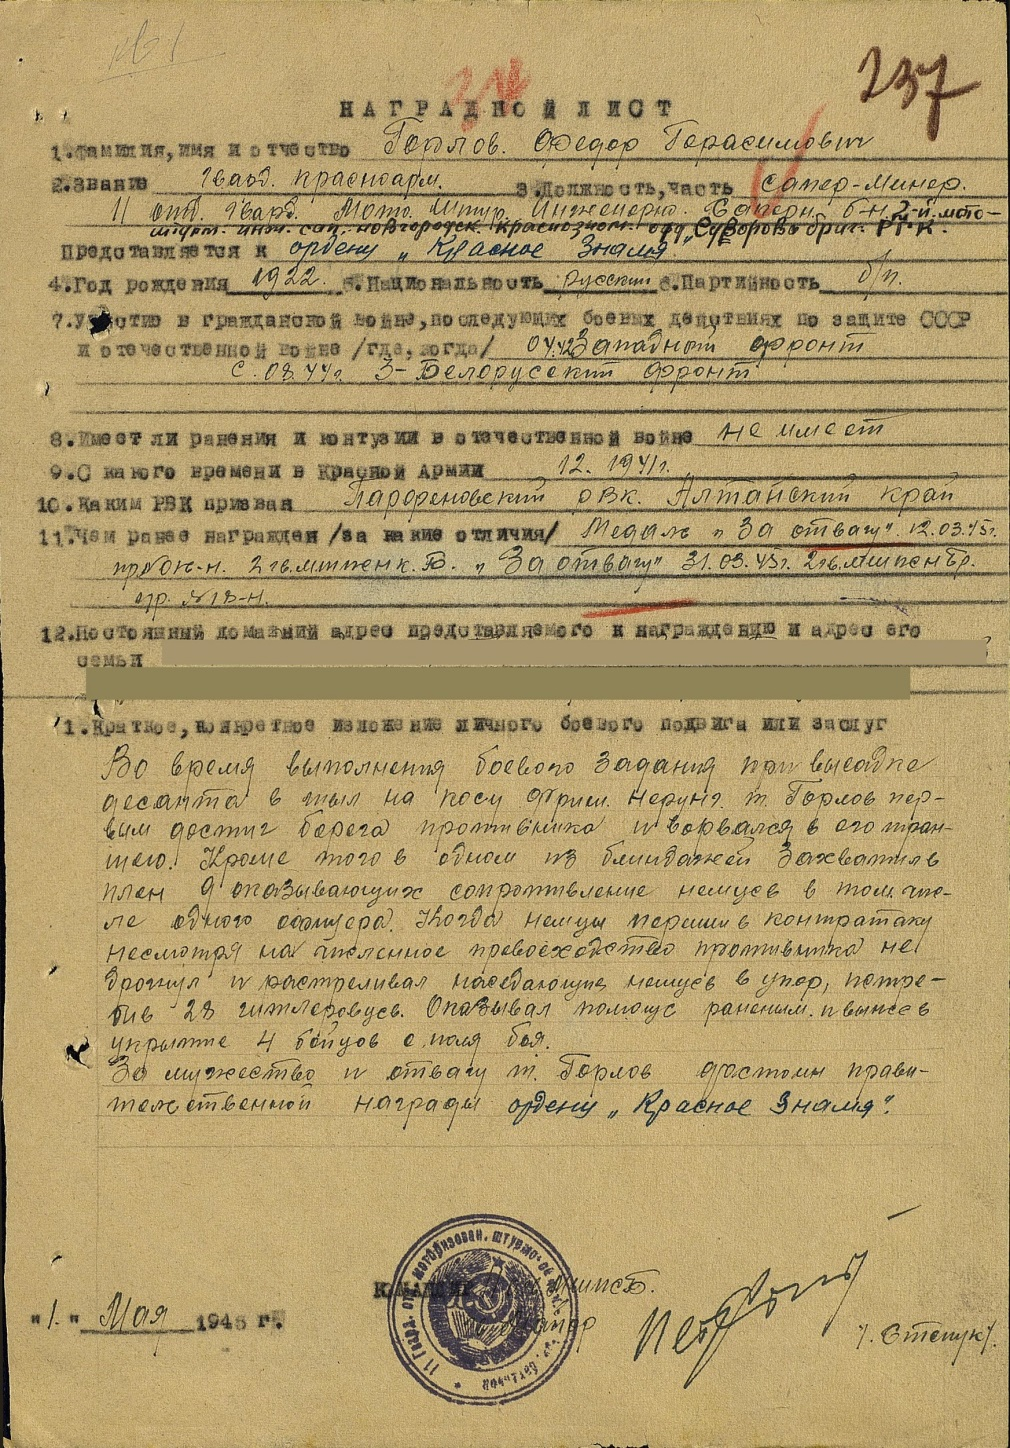 237
НАГРАДНОЙ ЛИСТ
1.Фамилия,имя и отчество Горлов. Федор Герасимович
2.Звание Гвард. красноарм. 3.Должность,часть сапер-минер.
11 отд. Гвард. Мото. Штур. Инженерно. Саперн. б-н 2-й мото-
штурм. инж. сап. новгородск. краснознам. орд „Суворова" бриг. РГК.
Представляется к ордену „Красное Знамя"
4.Год рождения 1922. 5.Национальность русский 6.Партийность б/п.
7.Участие в гражданской войне,последующих боевых действиях по защите СССР
и отечественной войне /где,когда/ 04.42 Западный фронт
с. 08.44г. 3-Белорусский фронт
8.Имеет ли ранения и контузии в отечественной войне не имеет
9.С какого времени в Красной Армии 12. 1941г.
10.Каким РВК призван Парфеновский РВК. Алтайский край
11.Чем ранее награжден /за какие отличия/ Медаль „За отвагу". 12.03.45г.
„За отвагу" 31.03.45г.
пр. №18-н.
12.Постоянный домашний адрес представляемого к награждению и адрес его
семьи
1.Краткое,конкретное изложение личного боевого подвига или заслуг
Во время выполнения боевого задания при высадке
десанта в тыл на косу Фриш. Нерунг. т. Горлов пер-
вым достиг берега противника и ворвался в его тран-
шею. Кроме того в одном из блиндажей захватил в
плен 9 оказывающих сопротивление немцев в том чис-
ле одного офицера. Когда немцы перешли в контратаку
несмотря на численное превосходство противника не
дрогнул и расстреливал наседающих немцев в упор, истре-
бив 28 гитлеровцев. Оказывал помощь раненым. и вынес в
укрытие 4 бойцов с поля боя.
За мужество и отвагу т. Горлов достоин прави-
тельственной награды ордену „Красное Знамя".
КОМАНДИР
"1." Мая 1945 г.
/. Степук/.